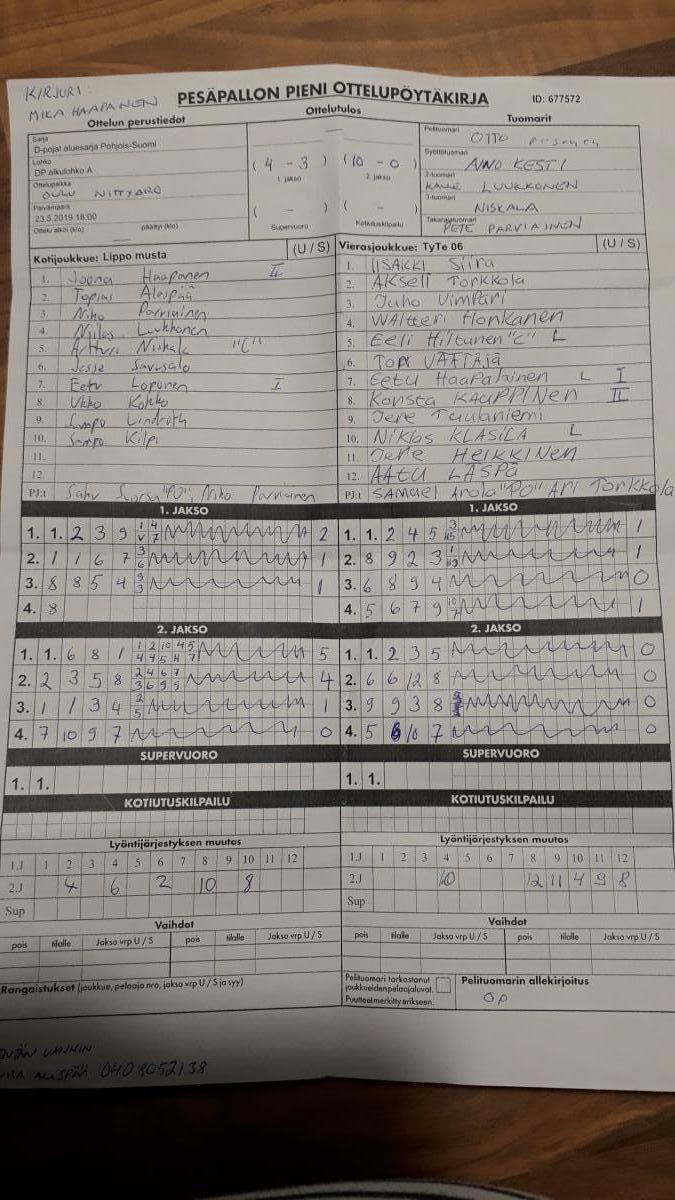 KIRJURI:
MIKA HAAPANEN
PESÄPALLON PIENI OTTELUPÖYTÄKIRJA
ID: 677572
Ottelun perustiedot
Ottelutulos
Tuomarit
Sarja
D-pojat aluesarja Pohjois-Suomi
Lohko
DP alkulohko A
Ottelupaikka
OULU NIITTYARO
Päivämäärä
23.5.2019 18:00
Ottelu alkoi (klo) päättyi (klo)
( 4 - 3 ) (10 - 0)
1. jakso 2. jakso
( - ) ( - )
Supervuoro Kotiutuskilpailu
Pelituomari
OTTO
Syöttötuomari
AINO KESTI
2-tuomari
KALLE LUUKKONEN
3-tuomari
NISKALA
Takarajatuomari
PETE PARVIAINEN
Kotijoukkue: Lippo musta (U / S)
1. Joona Haapanen II
2. Topias Alaspää
3. Niko Parviainen
4. Niilas Luukkonen
5. Artturi Niskala "C"
6. Jesse Savusalo
7. Eetu Loponen I
8. Ukko Kokko
9. Sampo Lindroth
10. Sampo Kilpi
11.
12.
PJ:t Saku Suorsa "PO", Niko Parviainen
Vierasjoukkue: TyTe 06 (U / S)
1. IISAKKI Siira
2. AKseli Torkkola
3. Juho Vimpari
4. Waltteri Honkanen
5. Eeli Hiltunen "C" L
6. Topi VÄÄTÄJÄ
7. Eetu Haapalainen L I
8. Konsta KAUPPINEN II
9. Jere Taulaniemi
10. NIKlas KLASILA L
11. Jere HEIKKINEN
12. AATU LASPA
PJ:t SAMUEL Arola "PO" ARI Torkkola
1. JAKSO
1. 1. 2 3 9 2
2. 1 1 6 7 3 6 1
3. 8 8 5 4 9 3 1
4. 8
1. JAKSO
1. 1. 2 4 5 1
2. 8 9 2 3 1
3. 6 8 9 4 0
4. 5 6 7 9 10 7 1
2. JAKSO
1. 1. 6 8 1 5
2. 2 3 5 8 4
3. 1 1 3 4 2 5 1
4. 7 10 9 7 0
2. JAKSO
1. 1. 2 3 5 0
2. 6 6 12 8 0
3. 9 9 3 8 0
4. 5 6 10 7 0
SUPERVUORO
1. 1.
SUPERVUORO
1. 1.
KOTIUTUSKILPAILU
KOTIUTUSKILPAILU
Lyöntijärjestyksen muutos
1.J 1 2 3 4 5 6 7 8 9 10 11 12
2.J 4 6 2 10 8
Sup
Lyöntijärjestyksen muutos
1.J 1 2 3 4 5 6 7 8 9 10 11 12
2.J 10 12 11 4 9 8
Sup
Vaihdot
pois tilalle Jakso vrp U / S pois tilalle Jakso vrp U / S
Vaihdot
pois tilalle Jakso vrp U / S pois tilalle Jakso vrp U / S
Rangaistukset (joukkue, pelaaja nro, jakso vrp U / S ja syy)
Pelituomari tarkastanut
joukkueiden pelaajaluvat.
Puutteet merkitty erikseen.
Pelituomarin allekirjoitus
OP
VANHIN
ALASPÄÄ 040 8052138